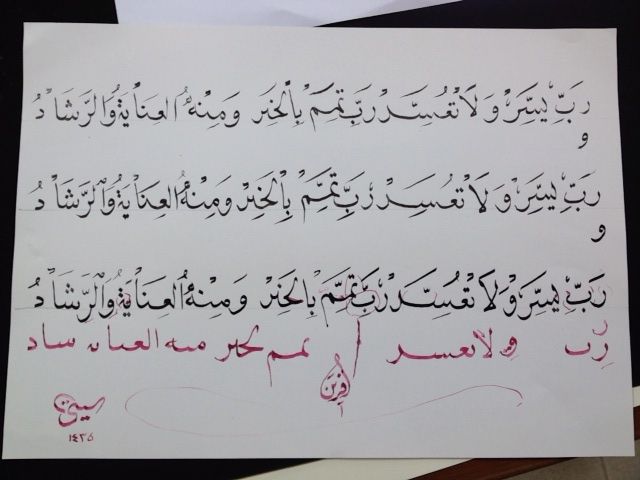 رَبِّ يَسِّرْ وَلَا تُعَسِّرْ رَبِّ تَمِّمْ بِالْخَيْرِ وَمِنْهُ الْعِنَايَةُ وَالرَّشَادُ
و
رَبِّ يَسِّرْ وَلَا تُعَسِّرْ رَبِّ تَمِّمْ بِالْخَيْرِ وَمِنْهُ الْعِنَايَةُ وَالرَّشَادُ
و
رَبِّ يَسِّرْ وَلَا تُعَسِّرْ رَبِّ تَمِّمْ بِالْخَيْرِ وَمِنْهُ الْعِنَايَةُ وَالرَّشَادُ
رب و لا تعسر تمم لخير منه العنا ساد
١٤٣٥